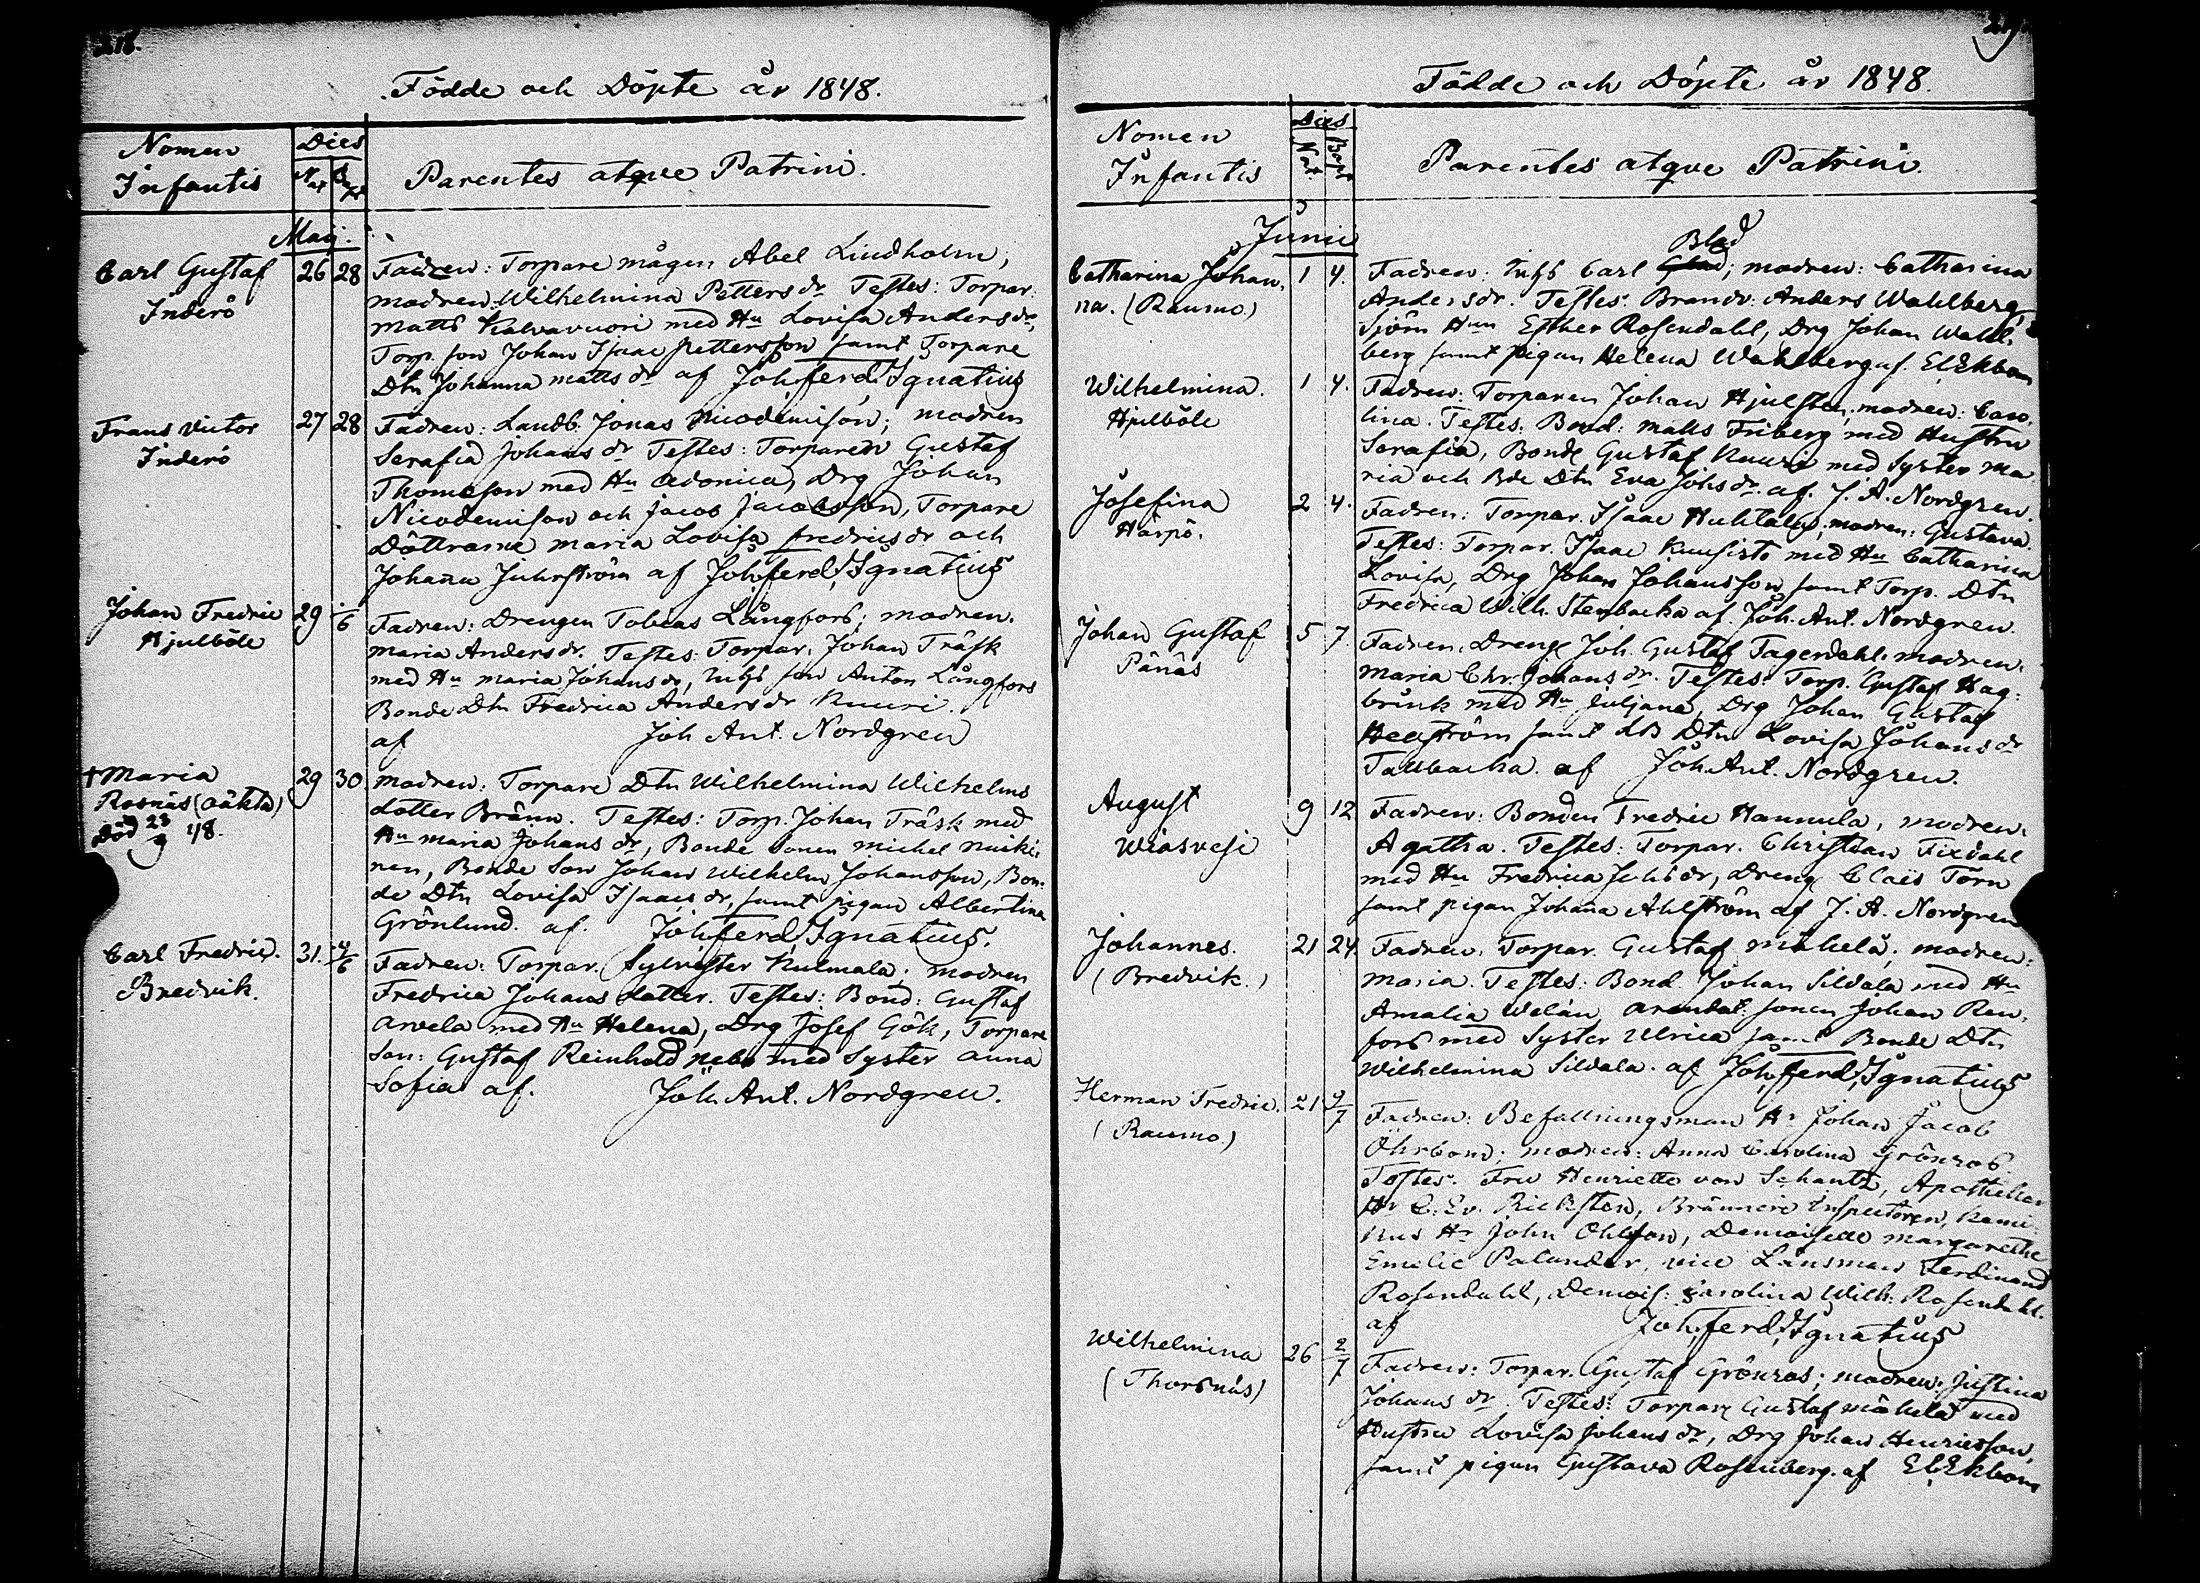 216.
Födde och Döpte år 1848.
Nomen Infantis
Dies
Nat
Bapt
Parentes atqve Patrini.
Maij.
Carl Gustaf
Inderö
26 28
Fadren: Torpare mågen Abel Lindholm,
modren Wilhelmina Petters dr Testes: Torpar.
Matts Kalvavuori med Hu Lovisa Anders dr,
Torp. son Johan Isaac Pettersson samt Torpare
Dtn Johanna Matts dr af Joh. Ferd. Ignatius
Frans Victor
Inderö
27 28
Fadren: Landb. Jonas Nicodemison; modren
Serafia Johans dr Testes: Torparen Gustaf
Thomasson med Hu Adonica, Drg Johan
Nicodemison och Jacob Jacobsson, Torpare
Döttrarne Maria Lovisa Fredrics dr och
Johana Juhrström af Joh. Ferd. Ignatius
Johan Fredric
Hjulböle
29
/6
Fadren: Drengen Tobias Långfors; modren.
Maria Anders dr. Testes: Torpar. Johan Träsk
med Hu Maria Johans dr, Inhs son Anton Långfors
Bonde Dtn Fredrica Anders dr Knuri.
af Joh Ant. Nordgren
+ Maria
Rosnäs (oäkta)
Död 23/9 48.
29 30
Modren: Torpare Dtn Wilhelmina Wilhelms
dotter Bränn. Testes: Torp. Johan Träsk med
Hu Maria Johans dr, Bonde sonen Michel
nen, Bonde Son Johan Wilhelm Johansson, Bon-
de Dtn Lovisa Isaacs dr, samt pigan Albertina
Grönlund. af. Joh. Ferd. Ignatius.
Carl Fredric.
Bredvik.
31. 4/6
Fadren: Torpar. Sylvester Kulmala; modren
Fredrica Johans dotter. Testes: Bond: Gustaf
Arvela med Hu Helena, Drg Josef Gök, Torpare
Son: Gustaf Reinhold med Syster Anna
Sofia af. Joh. Ant. Nordgren.
Födde och Döpte år 1848.
Nomen Infantis
Dies
Nat.
Bapt
Parentes atqve Patrini.
Junii
Catharina Johan-
na. (Raumo)
1 4.
Blad
Fadren: Inhs Carl; modren: Catharina
Anders dr. Testes: Brandv: Anders Wahlberg,
Sjöm Hun Esther Rosendahl, Drg Johan Wahl-
berg samt pigan Helena Wahlberg af. El Ekbom
Wilhelmina.
Hjulböle
1 4.
Fadren: Torparen Johan Hjulsten, modren: Caro-
lina. Testes. Bond: Matts Friberg med Hustru
Serafia, Bonde Gustaf Knuri med Syster Ma-
ria och Bde Dtn Eva Johs dr. af. J. A. Nordgren.
Josefina
Härpö.
2 4.
Fadren: Torpar. Isaac Huhtala, modren: Gustava.
Testes: Torpar. Isaac Kuusisto med Hu Catharina
Lovisa, Drg Johan Johansson, samt Torp. Dtn
Fredrica Wilh. Stenbacka af. Joh. Ant. Nordgren.
Johan Gustaf
Pänäs
5 7.
Fadren: Dreng. Joh. Gustaf Fagerdahl. modren.
Maria Chr. Johans dr. Testes: Torp. Gustaf Hag-
brink med Hu Juljana, Drg Johan Gustaf
Hegström samt LB Dtn Lovisa Johans dr
Tallbacka. af Joh. Ant. Nordgren.
August
Wiasvesi
9 12
Fadren: Bonden Fredric Hannula, modren.
Agatha. Testes: Torpar. Christian Fixdahl
med Hu Fredrica Johs dr, Dreng Claës Törn
samt pigan Johana Ahlström af J. A. Nordgren
Johannes.
(Bredvik.)
21 24.
Fadren. Torpar. Gustaf Mikelä; modren:
Maria. Testes: Bond. Johan Sildala med Hu
Amalia Welän Arendat. sonen Johan Ren-
fors med Syster Ulrica samt Bonde Dtn
Wilhelmina Sildala. af Joh. Ferd. Ignatius
Herman Fredric.
(Raumo.)
21 9/7
Fadren: Befallningsman Hr Johan Jacob
Öhrbom; modren: Anna Carolina Grönros.
Testes. Fru Henriette von Schantz, Apothekar
Hr C. Ev. Ricksten, Brännerie Inspectoren,
Hr John Ohlson, Demoiselle Margarethe
Emelie Palander, vice Länsman Ferdinand
Rosendahl, Demois: Carolina Wilh: Rosendahl.
af Joh. Ferd. Ignatius
Wilhelmina
(Thorsnäs)
26 2/7
Fadren: Torpar. Gustaf Grönros; modren. Justina
Johans dr. Testes: Torpare Gustaf Mäkelä med
Hustru Lovisa Johans dr, Drg Johan Henricsson,
samt pigan Gustava Rosenberg. af El Ekbom